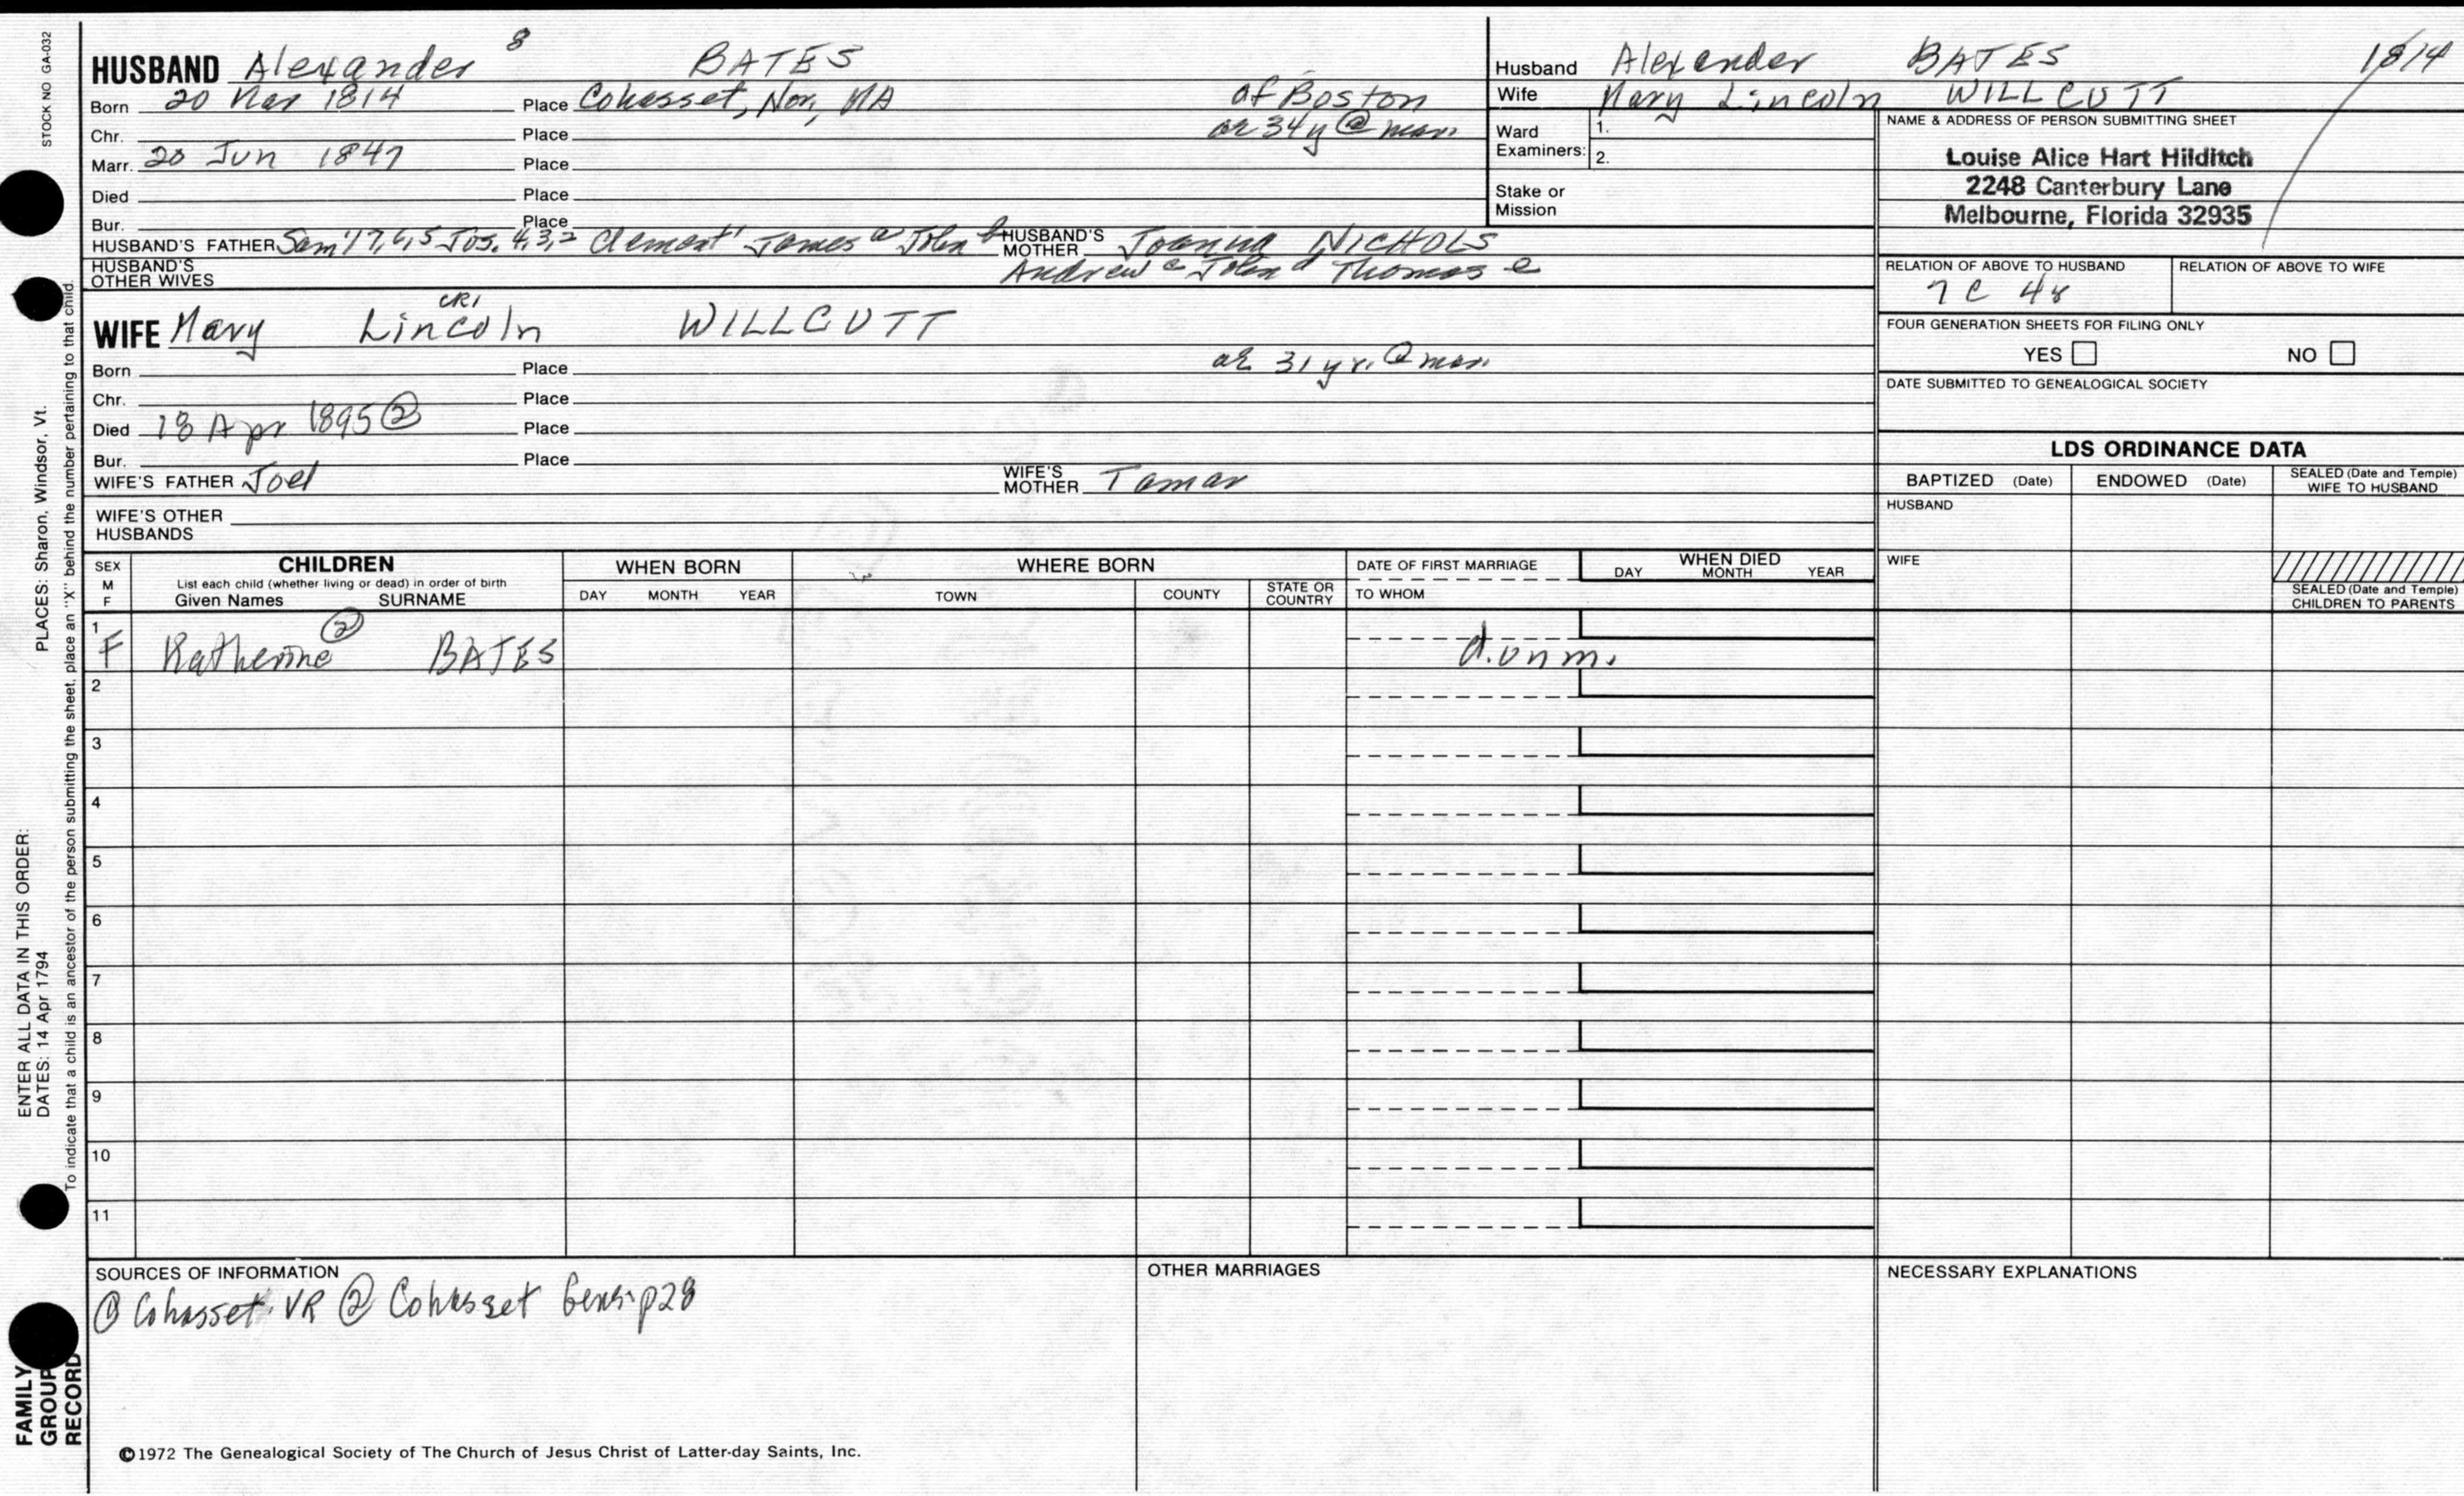 STOCK NO GA-032
PLACES: Sharon, Windsor, Vt.
ENTER ALL DATA IN THIS ORDER:
DATES: 14 Apr 1794
To indicate that a child is an ancestor of the person submitting the sheet, place an "X" behind the number pertaining to that child.
FAMILY GROUP RECORD
HUSBAND Alexander 8 BATES
Born 20 Mar 1814 Place Cohasset, Nor, MA of Boston
Chr. Place ae 34y @ marr
Marr. 20 Jun 1847 Place
Died Place
Bur. Place
HUSBAND'S FATHER Sam'l 7,6,5 Jos. 4,3,2 Clement1 James a John b HUSBAND'S MOTHER Joanna NICHOLS
HUSBAND'S OTHER WIVES Andrew c John d Thomas e
WIFE Mary CR1 Lincoln WILLCUTT
Born Place ae 31 yr. @ marr.
Chr. Place
Died 18 Apr 1895 ② Place
Bur. Place
WIFE'S FATHER Joel WIFE'S MOTHER Tamar
WIFE'S OTHER HUSBANDS
Husband Alexander BATES 1814
Wife Mary Lincoln WILLCUTT
Ward Examiners: 1.
2.
Stake or Mission
NAME & ADDRESS OF PERSON SUBMITTING SHEET
Louise Alice Hart Hilditch
2248 Canterbury Lane
Melbourne, Florida 32935
RELATION OF ABOVE TO HUSBAND RELATION OF ABOVE TO WIFE
7 C 4r
FOUR GENERATION SHEETS FOR FILING ONLY
YES NO
DATE SUBMITTED TO GENEALOGICAL SOCIETY
LDS ORDINANCE DATA
BAPTIZED (Date) ENDOWED (Date) SEALED (Date and Temple) WIFE TO HUSBAND
HUSBAND
WIFE
SEALED (Date and Temple) CHILDREN TO PARENTS
SEX M F CHILDREN WHEN BORN WHERE BORN DATE OF FIRST MARRIAGE WHEN DIED
List each child (whether living or dead) in order of birth
Given Names SURNAME DAY MONTH YEAR TOWN COUNTY STATE OR COUNTRY TO WHOM DAY MONTH YEAR
1 F Katherine ② BATES d. unm.
2
3
4
5
6
7
8
9
10
11
SOURCES OF INFORMATION OTHER MARRIAGES NECESSARY EXPLANATIONS
① Cohasset VR ② Cohasset Gens. p28
©1972 The Genealogical Society of The Church of Jesus Christ of Latter-day Saints, Inc.